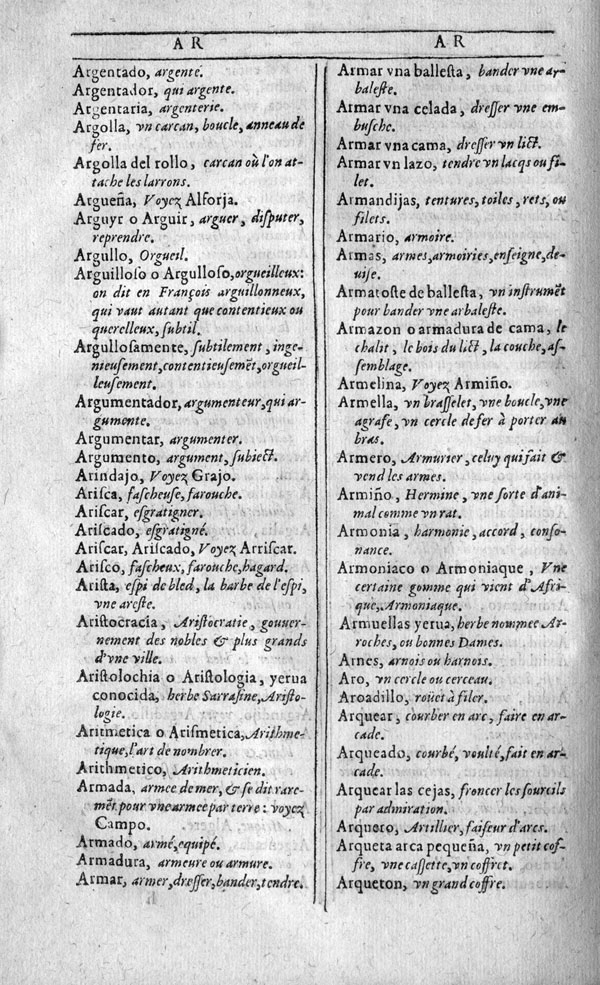 A R
Argentado, argenté.
Argentador, qui argente.
Argentaria, argenterie.
Argolla, vn carcan, boucle, anneau de
fer.
Argolla del rollo, carcan où l'on at-
tache les larrons.
Argueña, Voyez Alforja.
Arguyr o Arguir, arguer, disputer,
reprendre.
Argullo, Orgueil.
Arguilloso o Argulloso, orgueilleux:
on dit en François arguillonneux,
qui vaut autant que contentieux ou
querelleux, subtil.
Argullosamente, subtilement, inge-
nieusement, contentieusemēt, orgueil-
leusement.
Argumentador, argumenteur, qui ar-
gumente.
Argumentar, argumenter.
Argumento, argument, subiect.
Arindajo, Voyez Grajo.
Arisca, fascheuse, farouche.
Ariscar, esgratigner.
Ariscado, esgratigné.
Ariscar, Ariscado, Voyez Arriscar.
Arisco, fascheux, farouche, hagard.
Arista, espi de bled, la barbe de l'espi,
vne areste.
Aristocracia, Aristocratie, gouuer-
nement des nobles & plus grands
d'vne ville.
Aristolochia o Aristologia, yerua
conocida, herbe Sarrasine, Aristo-
logie.
Aritmetica o Arismetica, Arithme-
tique, l'art de nombrer.
Arithmetico, Arithmeticien.
Armada, armee de mer, & se dit rare-
mēt pour vne armee par terre: voyez
Campo.
Armado, armé, equipé.
Armadura, armeure ou armure.
Armar, armer, dresser, bander, tendre.
A R
Armar vna ballesta, bander vne ar-
baleste.
Armar vna celada, dresser vne em-
busche.
Armar vna cama, dresser vn lict.
Armar vn lazo, tendre vn lacqs ou fi-
let.
Armandijas, tentures, toiles, rets, ou
filets.
Armario, armoire.
Armas, armes, armoiries, enseigne, de-
uise.
Armatoste de ballesta, vn instrumēt
pour bander vne arbaleste.
Armazon o armadura de cama, le
chalit, le bois du lict, la couche, as-
semblage.
Armelina, Voyez Armiño.
Armella, vn brasselet, vne boucle, vne
agrafe, vn cercle de fer à porter au
bras.
Armero, Armurier, celuy qui fait &
vend les armes.
Armiño, Hermine, vne sorte d'ani-
mal comme vn rat.
Armonia, harmonie, accord, conso-
nance.
Armoniaco o Armoniaque, Vne
certaine gomme qui vient d'Afri-
que, Armoniaque.
Armuellas yerua, herbe nommee Ar-
roches, ou bonnes Dames.
Arnes, arnois ou harnois.
Aro, vn cercle ou cerceau.
Aroadillo, roüet à filer.
Arquear, courber en arc, faire en ar-
cade.
Arqueado, courbé, voulté, fait en ar-
cade.
Arquear las cejas, froncer les sourcils
par admiration.
Arquero, Artillier, faiseur d'arcs.
Arqueta arca pequeña, vn petit cof-
fre, vne cassette, vn coffret.
Arqueton, vn grand coffre.